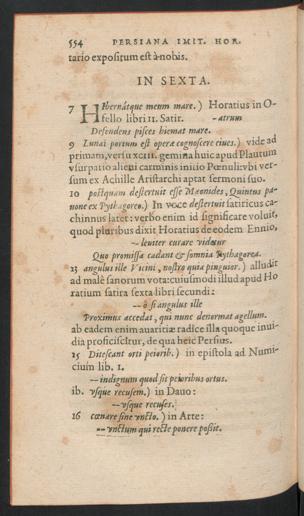 554 PERSIANA IMIT. HOR.
tario expositum est à nobis.
IN SEXTA.
7 Hibernátque meum mare.) Horatius in O-
fello libri II. Satir. -atrum
Defendens pisces hiemat mare.
9 Lunai portum est operæ cognoscere ciues.) vide ad
primam, versu XCIII. gemina huic apud Plautum
vsurpatio alieni carminis initio Pœnuli: vbi ver-
sum ex Achille Aristarchi aptat sermoni suo.
10 postquam destertuit esse Mæonides, Quintus pa-
uone ex Pythagoreo.) In voce destertuit satiricus ca-
chinnus latet: verbo enim id significare voluit,
quod pluribus dixit Horatius de eodem Ennio,
-- leuiter curare videtur
Quo promissa cadant & somnia Pythagorea.
13 angulus ille Vicini, nostro quia pinguior.) alludit
ad malè sanorum vota: cuiusmodi illud apud Ho
ratium satira sexta libri secundi:
-- ô si angulus ille
Proximus accedat, qui nunc denormat agellum.
ab eadem enim auaritiæ radice illa quoque inui-
dia proficiscitur, de qua heic Persius.
15 Ditescant orti peiorib.) in epistola ad Numi-
cium lib. I.
-- indignum quod sit peioribus ortus.
ib. vsque recusem.) in Dauo:
-- vsque recuses.
16 cœnare sine vncto.) in Arte:
-- vnctum qui recte ponere possit.